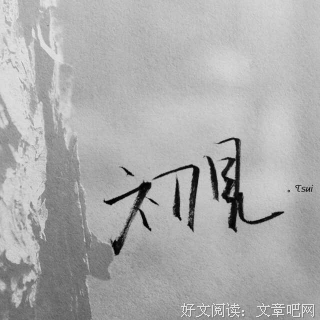 初見
. Tsui
好文阅读：文章吧网